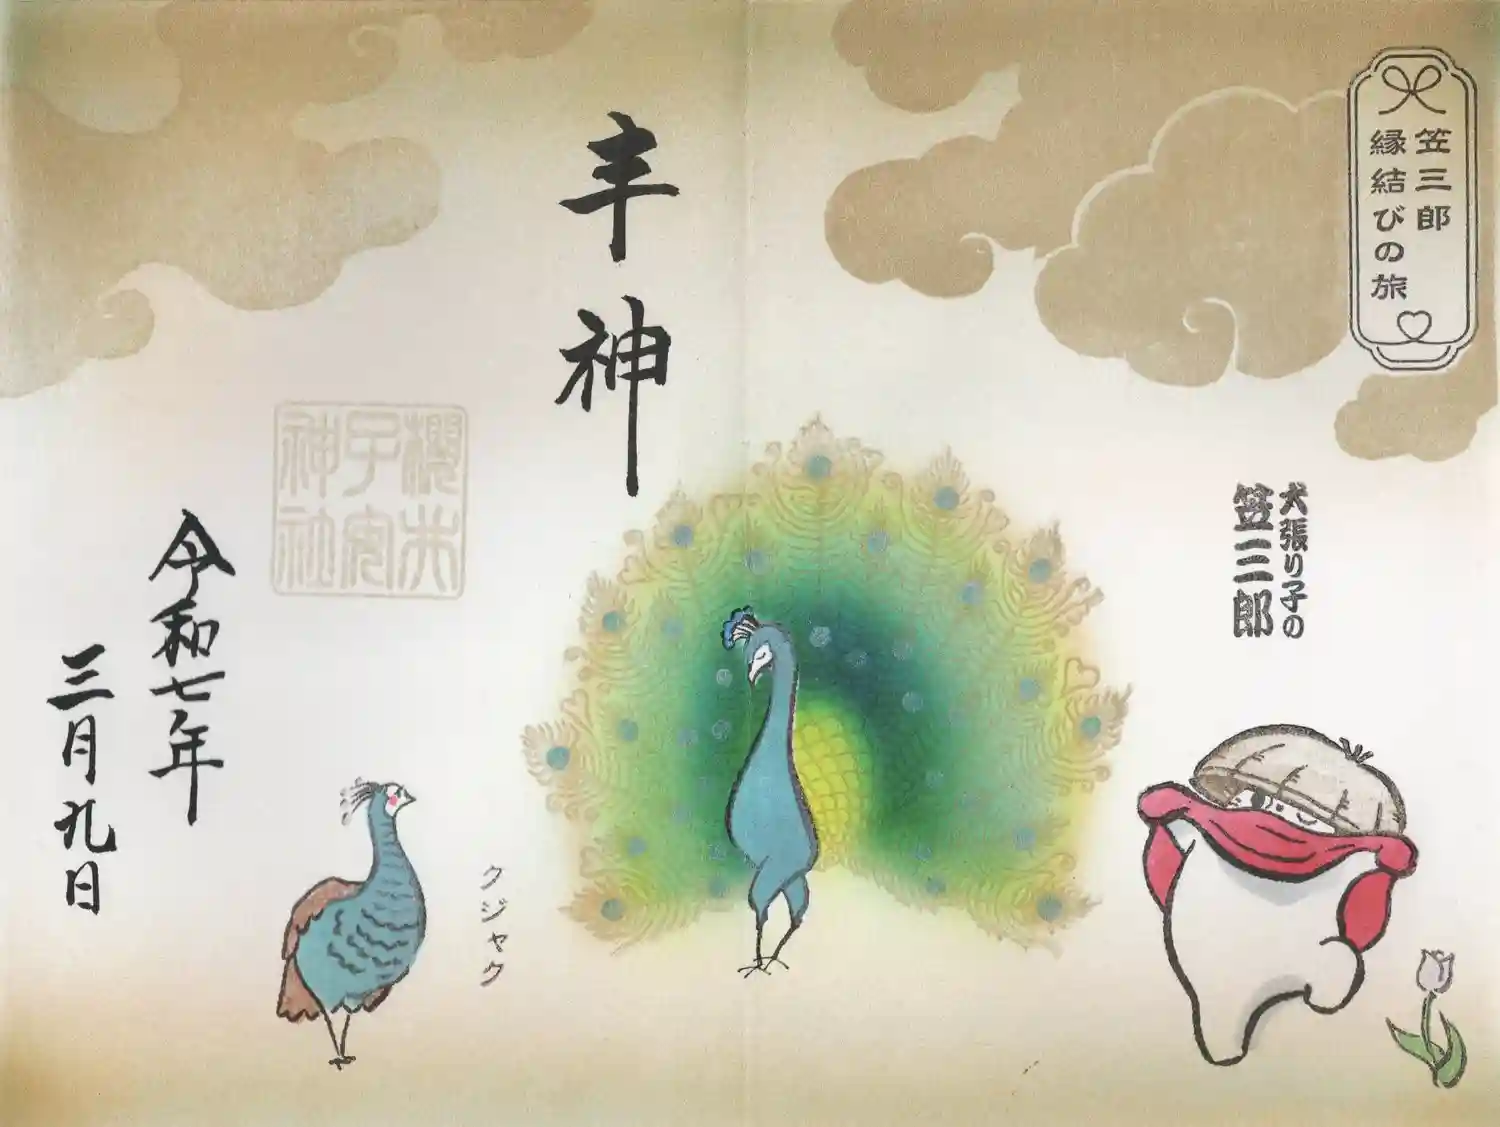 笠三郎
縁結びの旅
犬張り子の
笠三郎
丰神
クジャク
櫻井
子安
神社
令和七年
三月九日